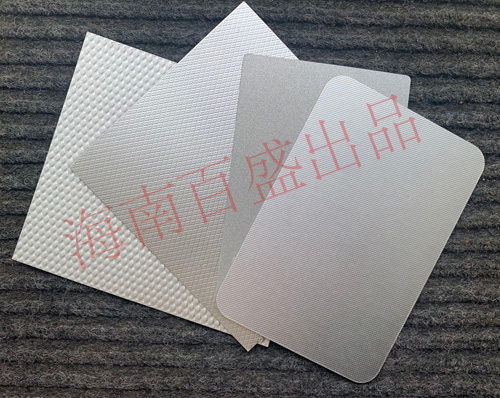 海南百盛出品